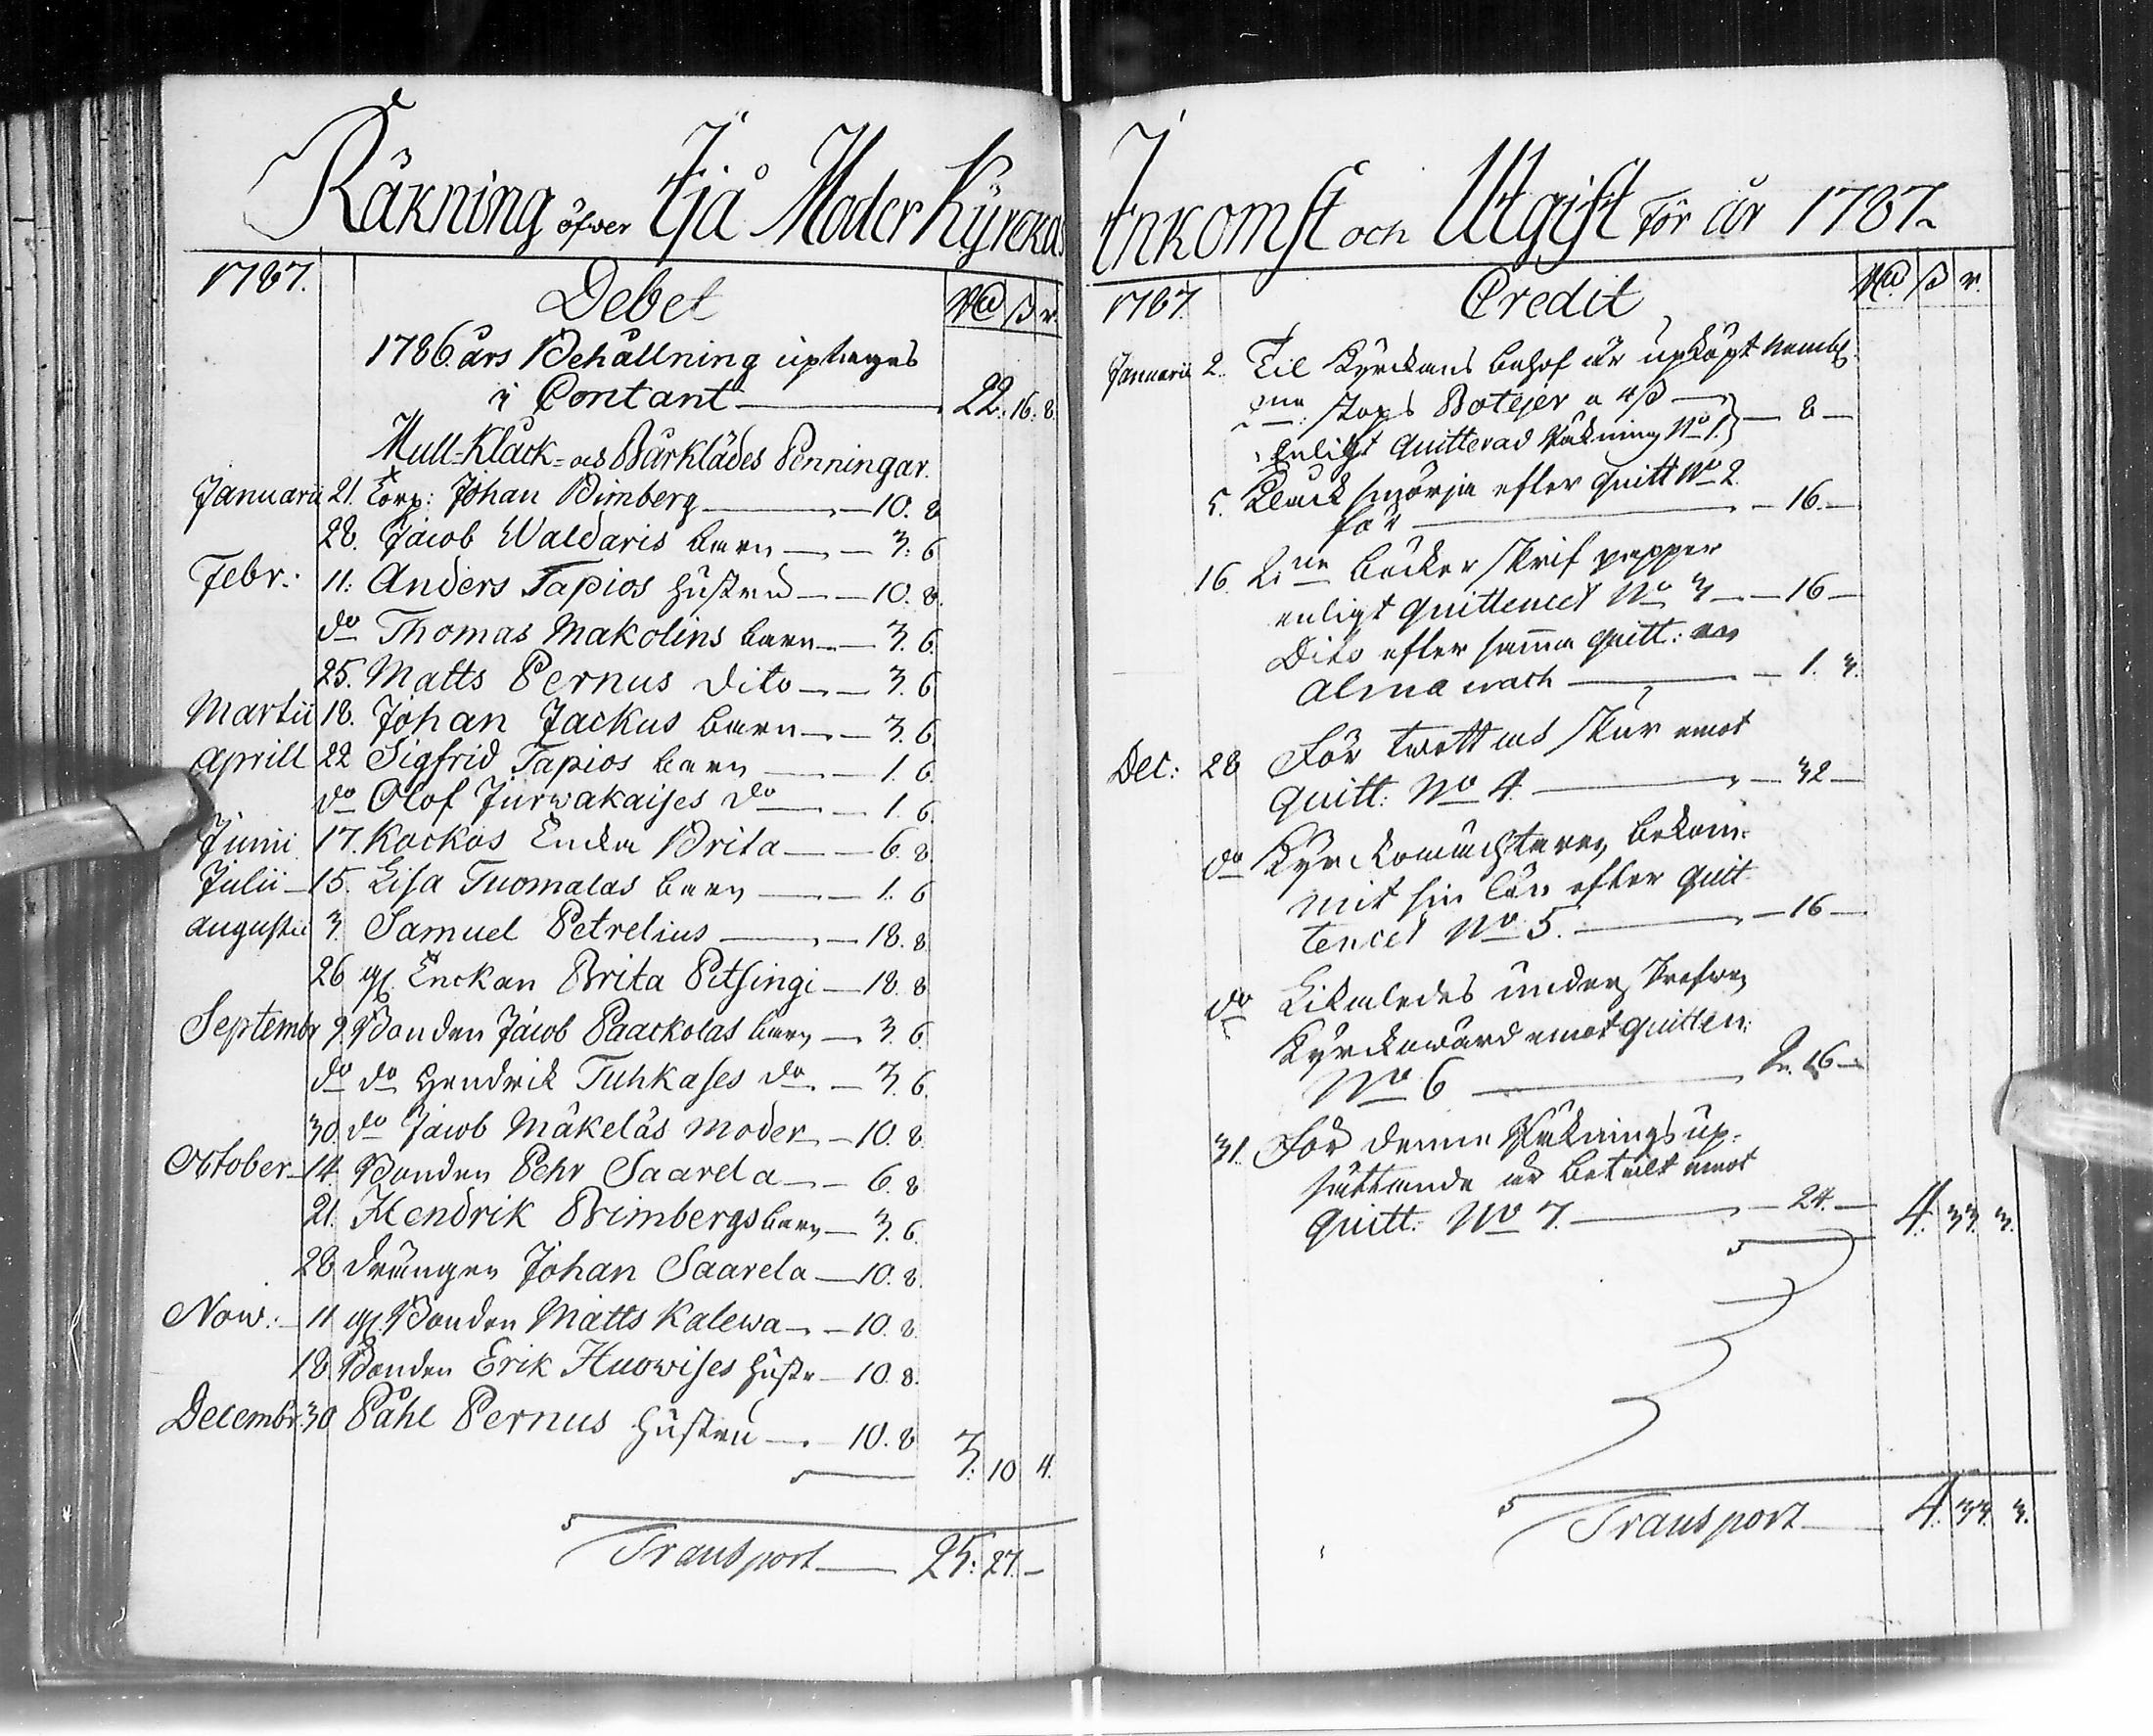 Räkning öfwer Ijå Moder Kyrckas
1787.
Debet
Rd ß r.
1786 års Behållning uptages
i Contant — 22. 16. 8.
Mull-Klåck- och Bårklädes Penningar.
Januarii 21. Corp: Johan Bimberg — 10. 8
28. Jacob Waldaris barn — 3. 6
Febr: 11. Anders Tapios hustru — 10. 8.
do Thomas Makolins barn — 3. 6.
25. Matts Pernus dito — 3. 6
Martii 18. Johan Jackus barn — 3. 6
Aprill 22 Sigfrid Tapios barn — 1. 6.
do Olof Jurwakaises do — 1. 6.
Junii 17. Kockos Enka Brita — 6. 8
Julii 15. Lisa Tuomalas barn — 1. 6
Augusti 3. Samuel Petrelius — 18. 8
26 gl. Enckan Brita Pitsingi — 18. 8
Septembr 9. Bonden Jacob Paackolas barn — 3. 6.
do do Hendrik Tuhkases do — 3. 6.
30. do Jacob Mäkeläs moder — 10. 8.
October 14. Bonden Pehr Saarela — 6. 8
21. Hendrik Brimbergs barn — 3. 6.
28 drängen Johan Saarela — 10. 8.
Now: 11 gl. Bonden Matts Kalewa — 10. 8.
18. Bonden Erik Huowises hustr — 10. 8.
Decembr: 30 Påhl Pernus hustru — 10. 8 3. 10 4.
Transport — 25. 27. —
Inkomst och Utgift för år 1787.
1787.
Credit
Rd. ß r.
Januarii 2. Til Kyrckans behof är upköpt nembl.
stops Botejer a 4ß
Enligt quitterad Räkning No 1. — 8 —
5. Klåck smörja efter quitt No 2.
för — 16. —
16. 2ne böcker skrif papper
enligt quittencet No 3 — 16 —
Dito efter samma quitt: en
Almanach — 1. 3.
Dec: 28 För twätt och skur emot
quitt: No 4. — 32 —
do Kyrckowäcktaren bekom-
mit sin lön efter quit
tencet No 5. — 16 —
do Likaledes under
Kyrckowärd emot quitten:
No 6 — 2. 16 —
31. För denna Räknings up-
sättande är betalt emot
quitt: No 7. — 24. — 4. 33. 3.
Transport — 4. 33. 3.